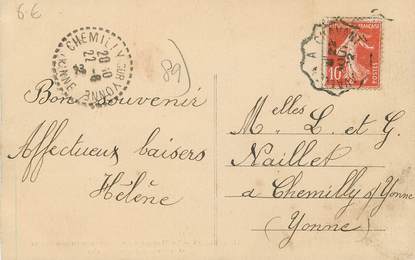 6 €
CHEMILLY SUR YONNE
20-10
22-8
YONNE
89
POSTES
10
Bon Souvenir
Affectueux baisers
Hélène
Melles L. et G.
Naillet
à Chemilly s/ Yonne
(Yonne)